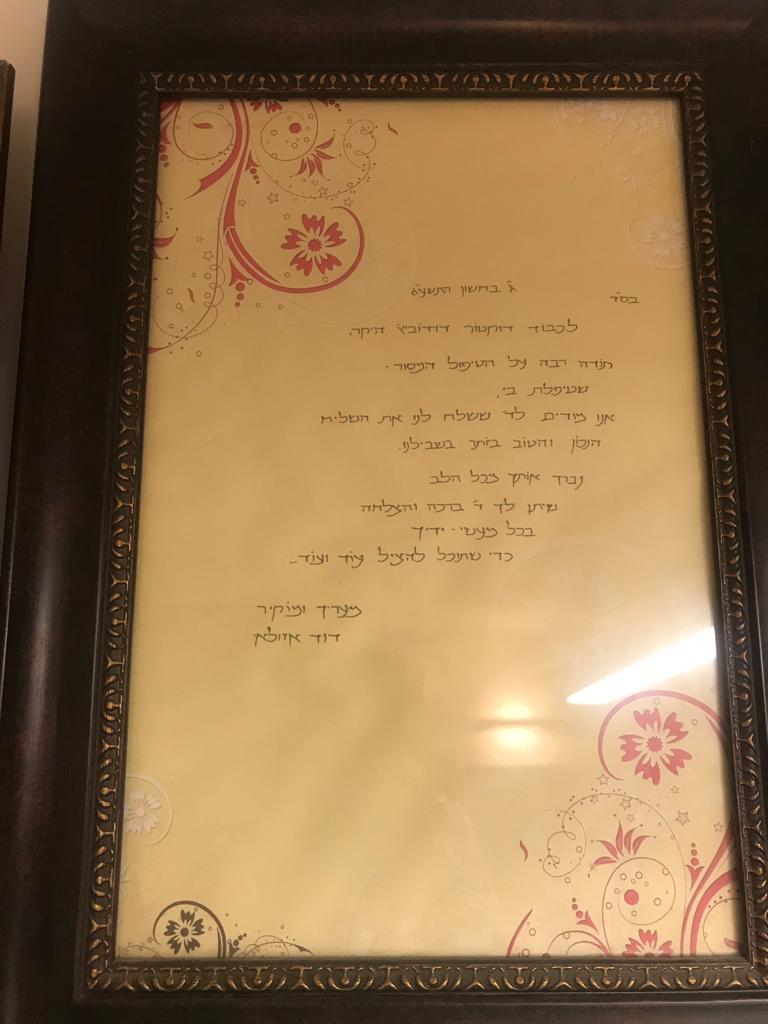 בס"ד
ג' בחשון התשע"ג
לכבוד דוקטור דודוביץ היקר,
תודה רבה על הטיפול המסור
שטיפלת בי,
אנו מודים לד' ששלח לנו את השליח
הנכון והטוב ביותר בשבילנו.
נברך אותך מכל הלב
שיתן לך ד' ברכה והצלחה
בכל מעשי - ידיך
כדי שתוכל להציל עוד ועוד...
מעריך ומוקיר
דוד אזולאי